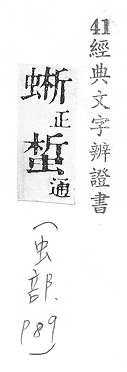 41經典文字辨證書
蜥正
蜤通
(虫部. P89)